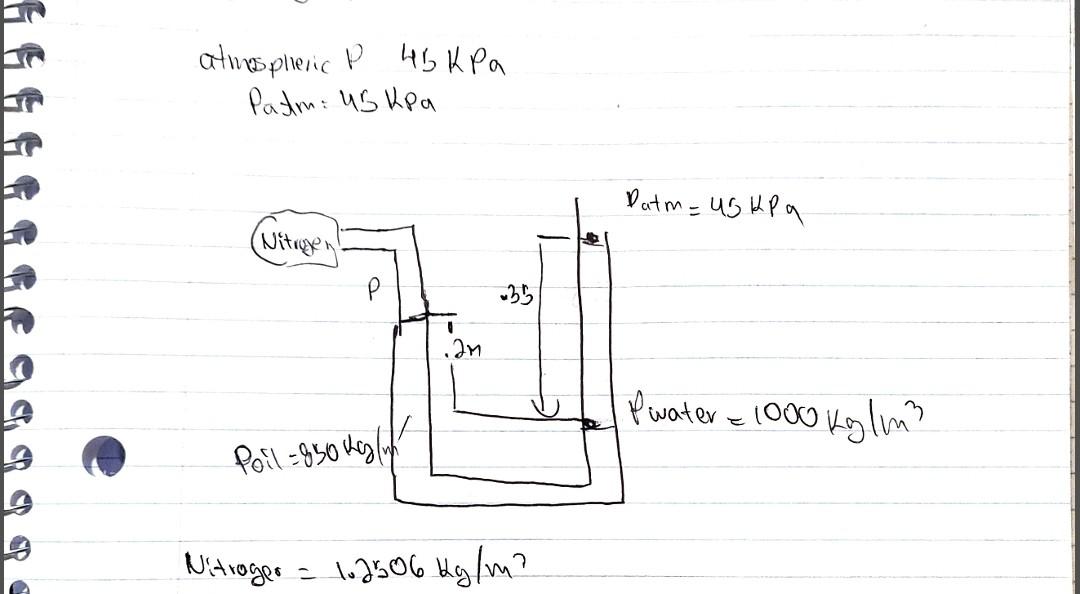 atmospheric P 45 KPa
Patm: 45 KPa
Patm = 45 KPa
Nitrogen
P
.35
.2m
ρwater = 1000 Kg/m³
ρoil = 850 Kg/m
Nitrogen = 1.2506 Kg/m³